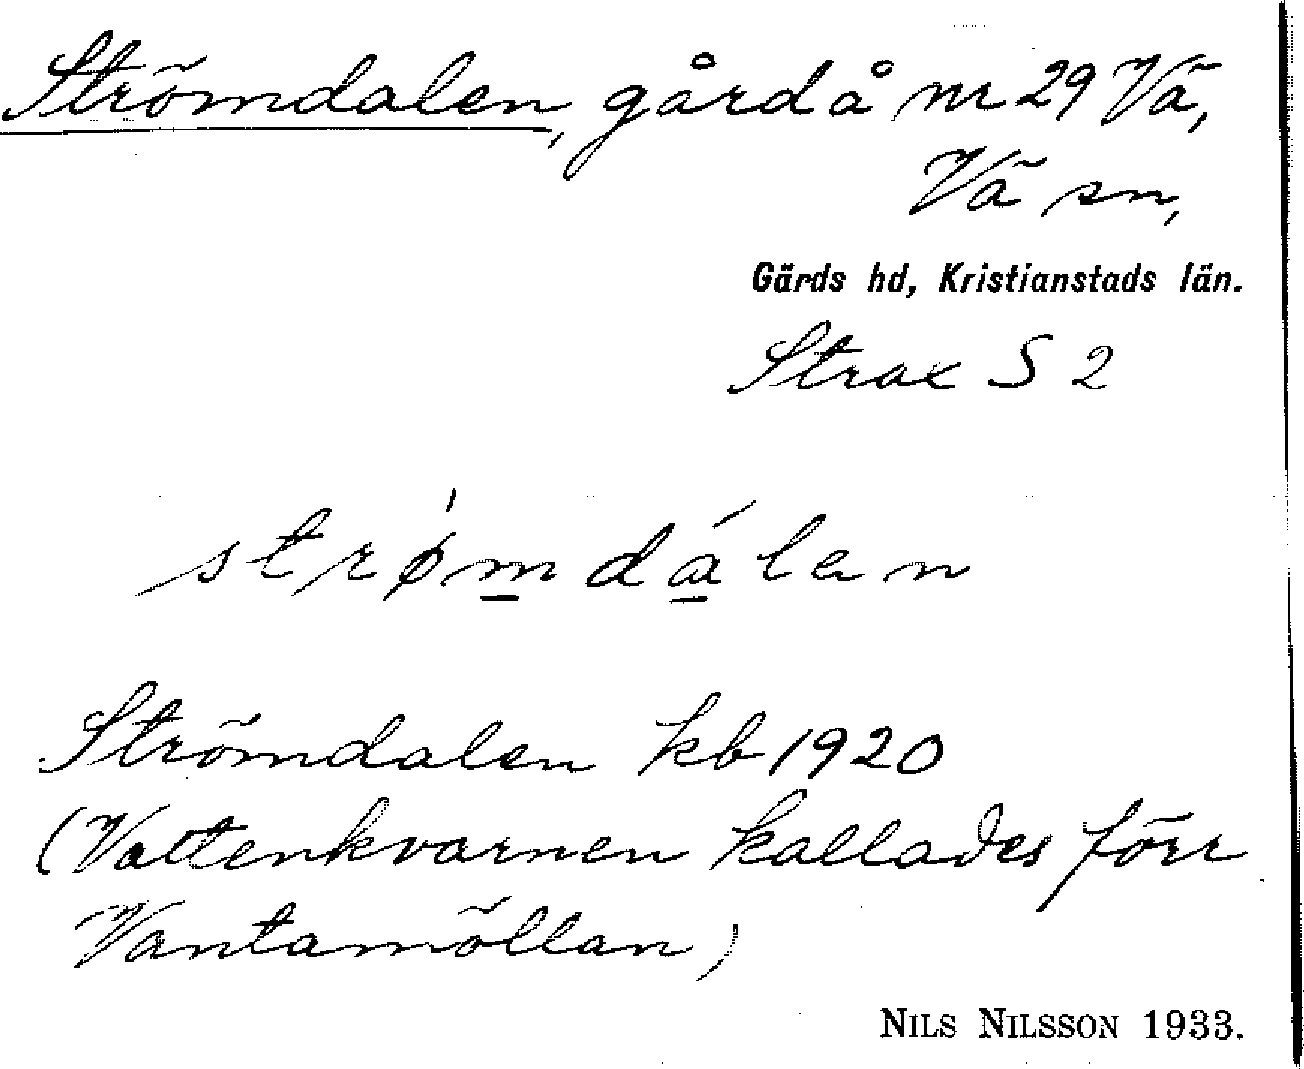 Strömdalen, gård å nr 29 Vä,
Vä sn,
Gärds hd, Kristianstads län.
Strax S 2
strø̍mdálen
Strömdalen kb 1920
(Vattenkvarnen kallades förr
Vantamöllan)
NILS NILSSON 1933.